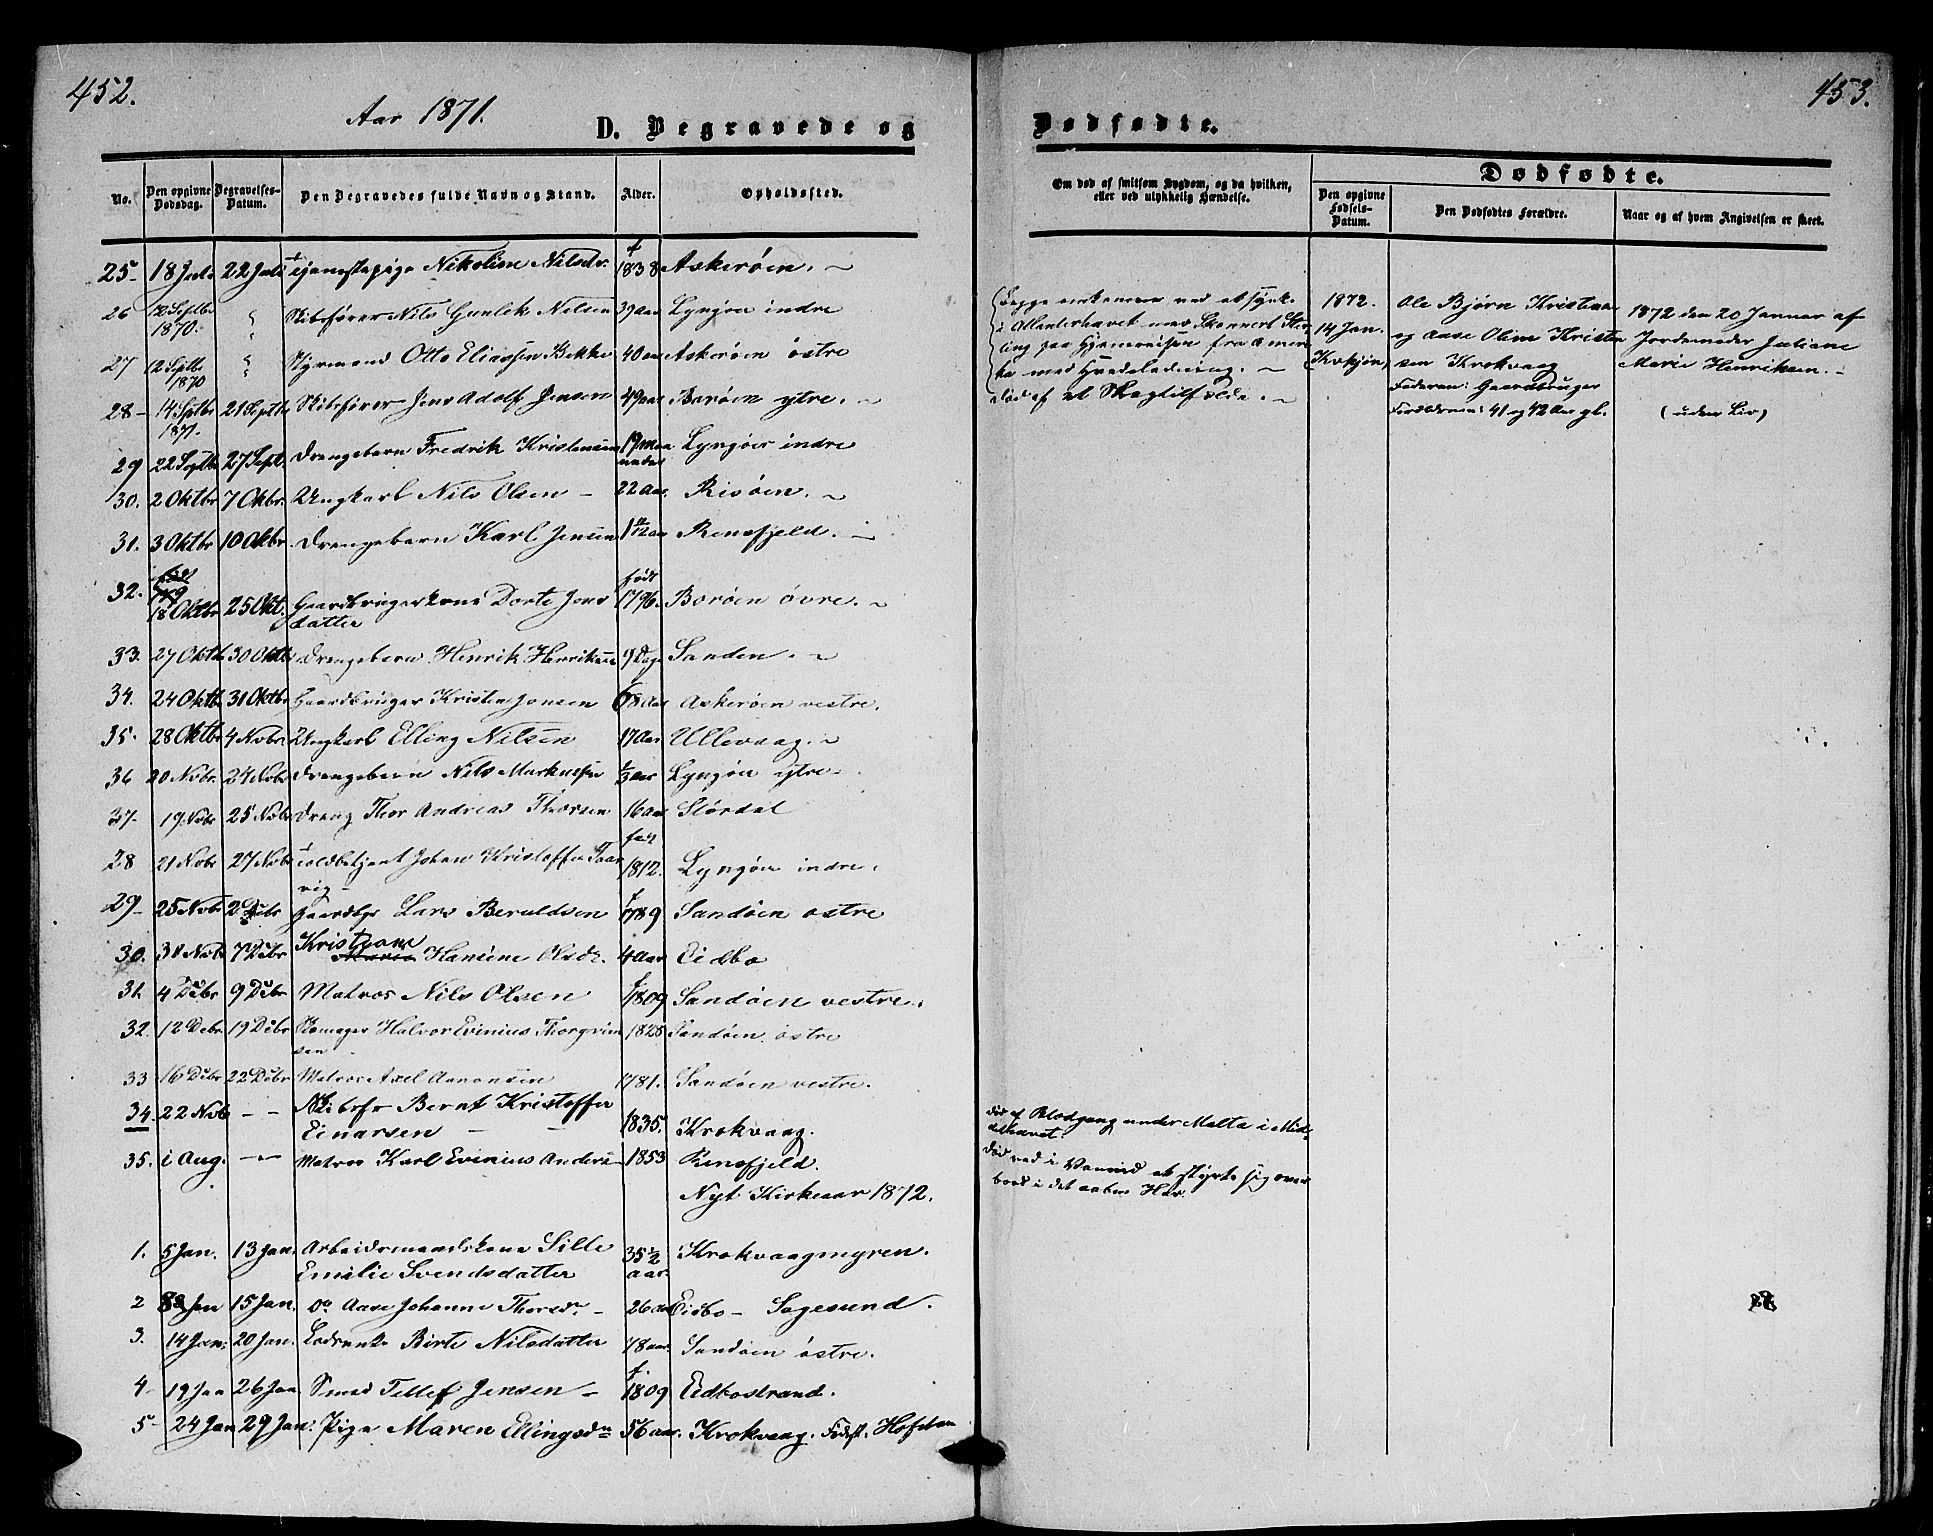 452.
Aar 1871.
D. Begravede og
No.
Den opgivne Dødsdag.
Begravelses-Datum.
Den Begravedes fulde Navn og Stand.
Alder.
Opholdssted.
25- 18 Juli 22 Juli Tjenestepige Nikoline Nilsdr. f 1838 Askerøen.
26 12 Septbr 1870. " Skibsfører Nils Gunlek Nilsen 39 Aar Lyngøen indre
27 12 Septbr 1870 " Styrmand Otto Eliassen Bekke 40 Askerøen östre
28- 14 Sptbr 1871. 21 Septbr Skibsfører Jens Adolf Jensen 49 aar Borøen ytre.
29 22 Septbr 27 Sept. Drengebarn Fredrik Kristensen 19 maaneder Lyngøer indre
30. 2 Oktbr 7 Okbr. Ungkarl Nils Olsen - 22 Aar. Risøen.
31. 3 Oktbr 10 Okbr. Drengebarn Karl Jensen 1 Rensfjeld.
32. 18 Oktbr 25 Okt. Gaardbrugerkone Dorte Jens
datter født 1796. Borøen övre.
33. 27 Oktb 30 Oktb Drengebarn Henrik Henriksen 9 Dage Sanden.
34. 24 Oktb. 31 Oktbr Gaardbruger Kristen Jensen 68 Aar Askerøen vestre.
35. 28 Oktbr 4 Nobr. Ungkarl Elling Nilsen 17 Aar Ullevaag.
36 20 Nobr. 24 Nobr Drengebarn Nils Markussen Lyngøen ytre.
37- 19 Nobr 25 Nobr Dreng Thor Andreas Thorsen 16 aar Slørdal
28 21 Nobr 27 Nobr Toldbetjent Johan Kristoffer Taar
vig - 1812. Lyngøen indre.
29- 25 Nobr 2 Debr Gaardbgr Lars Beruldsen f 1789 Sandøen östre
30. 30 Nobr 7 Debr Kristiane Hansine Olsdr. 4 Aar Eidbo
31. 4 Debr 9 Debr Matros Nils Olsen f 1809 Sandøen vestre.
32. 12 Debr 19 Debr Skomager Halvor Evinius Thorgrim
sen 1828 Sandøen östre
33 16 Debr 22 Debr Matros Axel Aanonsen 1781. Sandøen vestre.
34. 22 Nob - - Skibsfr Bernt Kristoffer
Einarsen - 1835. Krokvaag.
35. i Aug. - Matros Karl Evinius Andersen 1853 Rensfjeld.
Nyt Kirkeaar 1872.
1. 5 Jan. 13 Jan. Arbeidsmandskone Sille
Emilie Svendsdatter 35 1/2 aar. Krokvaagmyren.
2 8 Jan 15 Jan. Do Aase Johanne Thorsdr - 26 aar Eidbo - Sagesund.
3. 14 Jan: 20 Jan. Lodsenke Birte Nilsdatter 78 aar. Sandøen östre.
4- 19 Jan 26 Jan Smed Tellef Jensen - f. 1809 Eidbostrand.
5- 24 Jan 29 Jan: Pige Maren Ellingsdr 56 aar. Krokvaag. Fødest.
453.
Dødfødte.
Om død af smitsom Sygdom, og da hvilken, eller ved ulykkelig Hændelse.
Dødfødte.
Den opgivne Fødsels-Datum.
Den Dødfødtes Forældre.
Naar og af hvem Angivelsen er skeet.
Begge omkommen ved at synke
i Atlanterhavet med Skonnert Ster
ling paa Hjemreisen fra Ameri
ka med Hvedeladning.
død af et Slagtilfælde.
1872.
14 Jan.
Ole Bjørn Kristian
og Aase Oline Kristen
sen Krokvaag
Faderen: Gaardbruger
Forældrene: 41 og 42 Aar gl.
1872 den 20 Januar af
Jordemoder Juliane
Marie Henriksen.
(uden Liv)
død af Blodgang under Malta i Mid-
delhavet.
død ved i Vanvid at styrte sig over
bord i det aabne Hav.